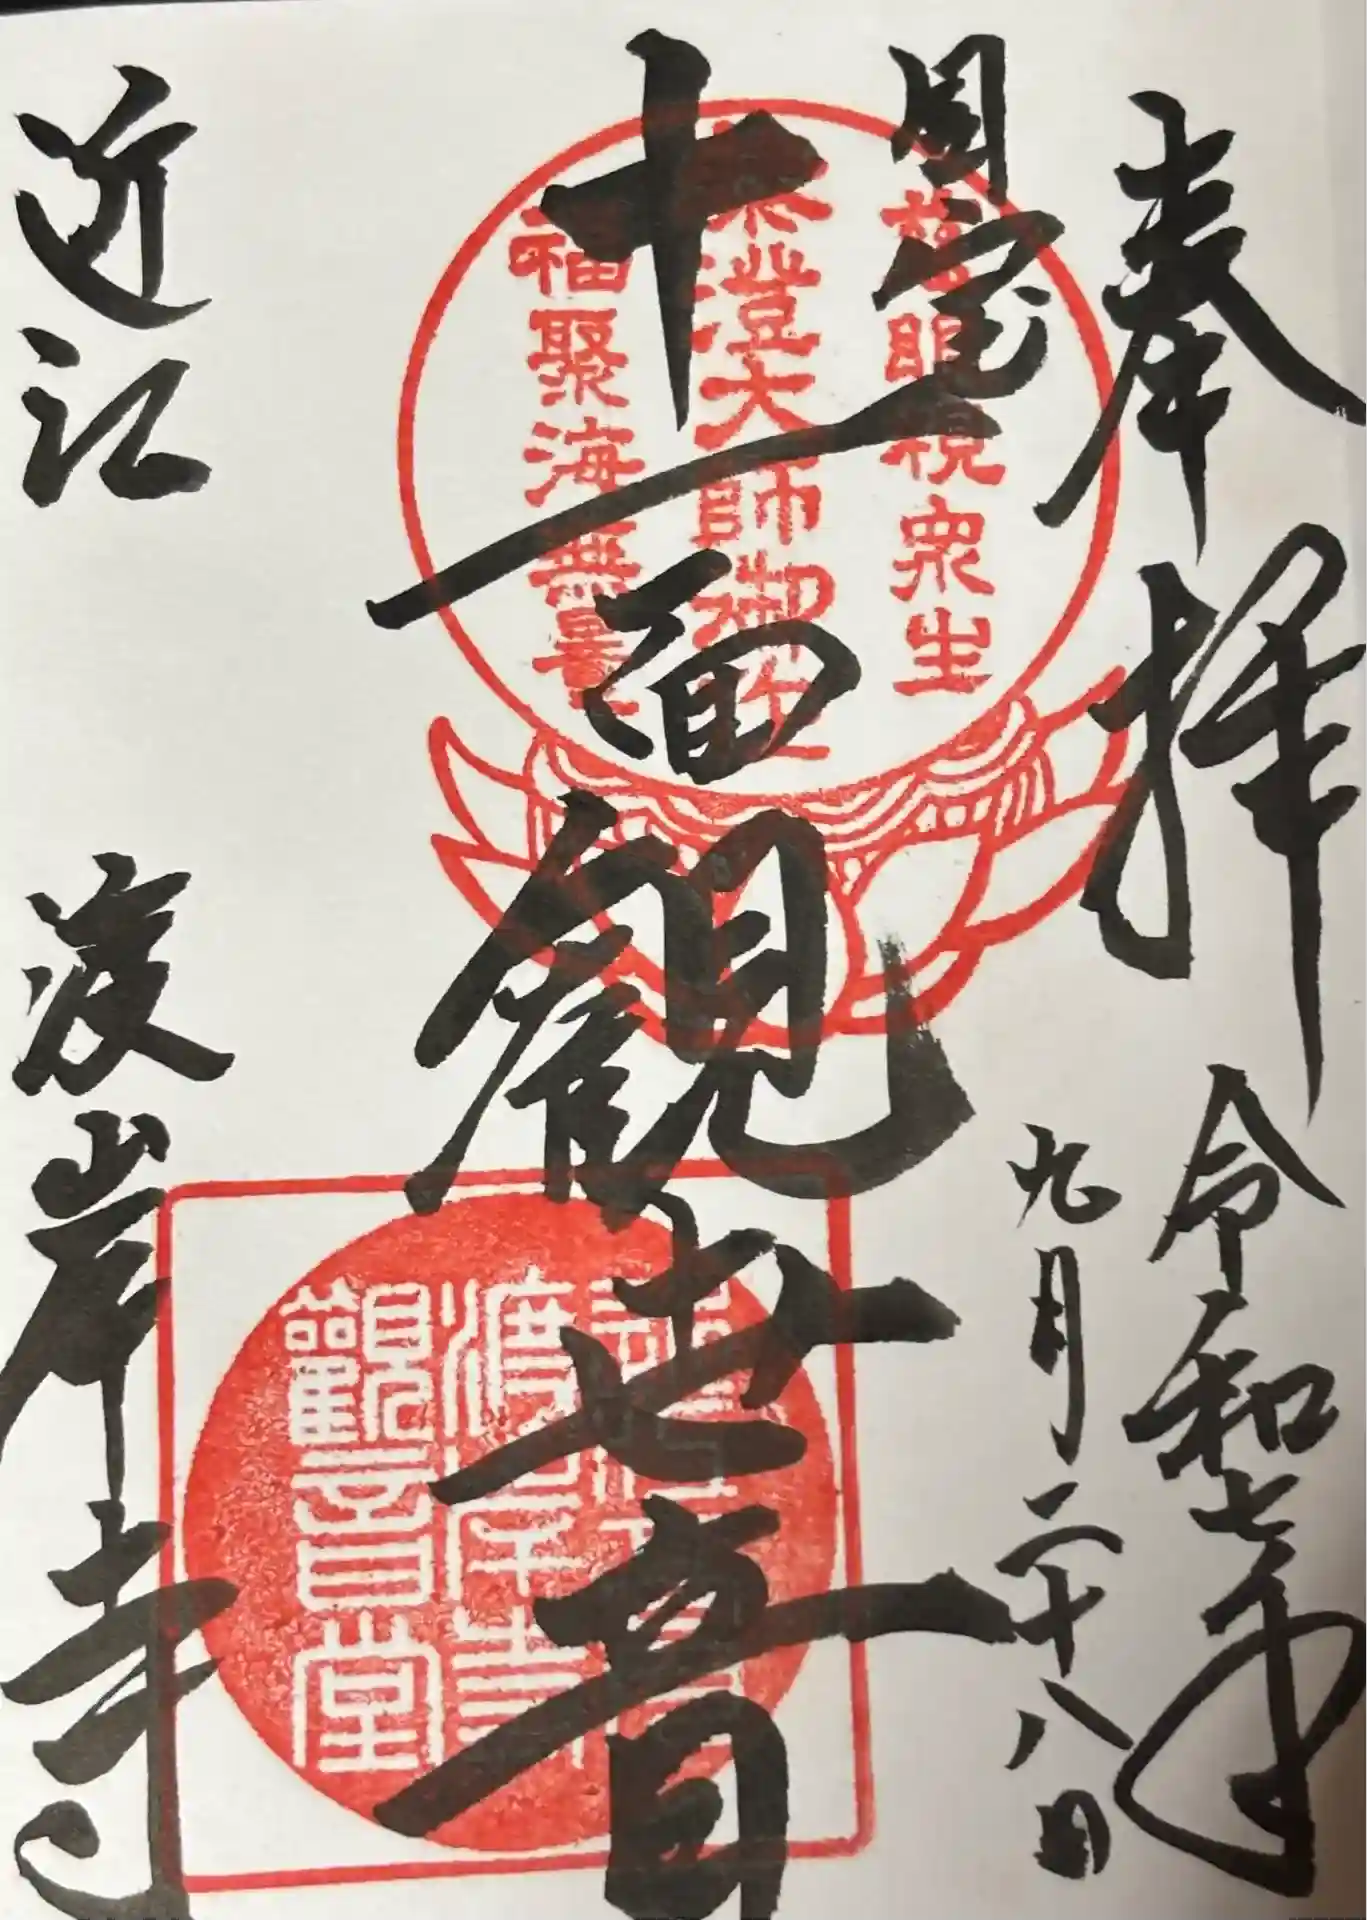 奉拝
令和七年
九月二十八日
国宝
十一面観世音
近江
渡岸寺
慈眼視衆生
傳澄大師御作
福聚海無量
渡岸寺
観音堂